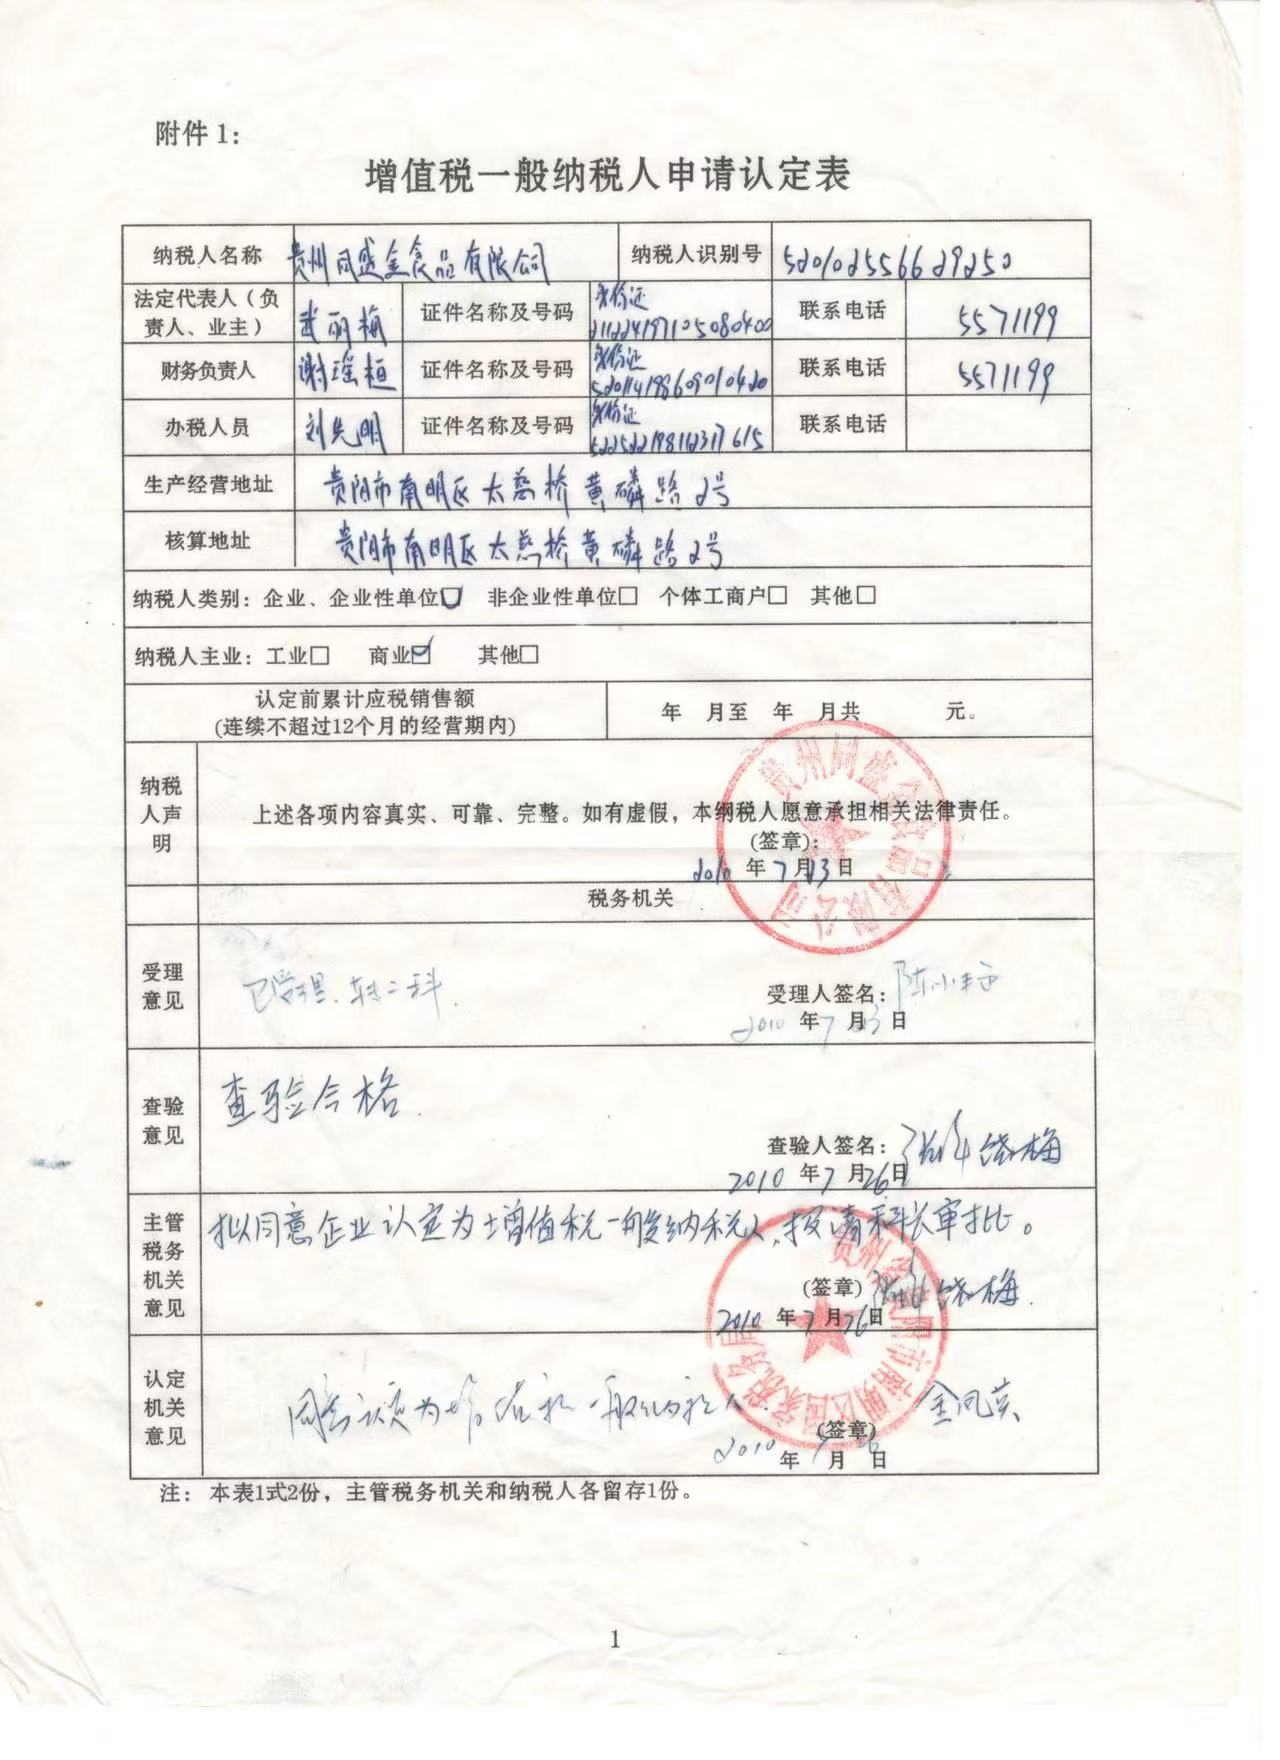 附件 1：
增值税一般纳税人申请认定表
纳税人名称 贵州同盛金食品有限公司 纳税人识别号 520102556629250
法定代表人（负责人、业主） 武丽梅 证件名称及号码 身份证 211224197105080400 联系电话 5571199
财务负责人 谢瑶桓 证件名称及号码 身份证 520114198609010420 联系电话 5571199
办税人员 刘先明 证件名称及号码 身份证 522522198112317615 联系电话
生产经营地址 贵阳市南明区太慈桥黄磷路2号
核算地址 贵阳市南明区太慈桥黄磷路2号
纳税人类别：企业、企业性单位☑ 非企业性单位□ 个体工商户□ 其他□
纳税人主业：工业□ 商业☑ 其他□
认定前累计应税销售额
(连续不超过12个月的经营期内) 年 月至 年 月共 元。
纳税人声明
上述各项内容真实、可靠、完整。如有虚假，本纳税人愿意承担相关法律责任。
(签章)：
2010 年 7 月 23 日
贵州同盛金食品有限公司
税务机关
受理意见
已受理.转二科.
受理人签名：陈小
2010 年 7 月 23 日
查验意见
查验合格.
查验人签名： 饶梅
2010 年 7 月 26 日
主管税务机关意见
拟同意企业认定为增值税一般纳税人，报请科长审批。
(签章) 饶梅
2010 年 7 月 26 日
贵州省贵阳市南明区国家税务局
认定机关意见
同意认定为增值税一般纳税人.
(签章)
2010 年 7 月 26 日
注： 本表1式2份，主管税务机关和纳税人各留存1份。
1